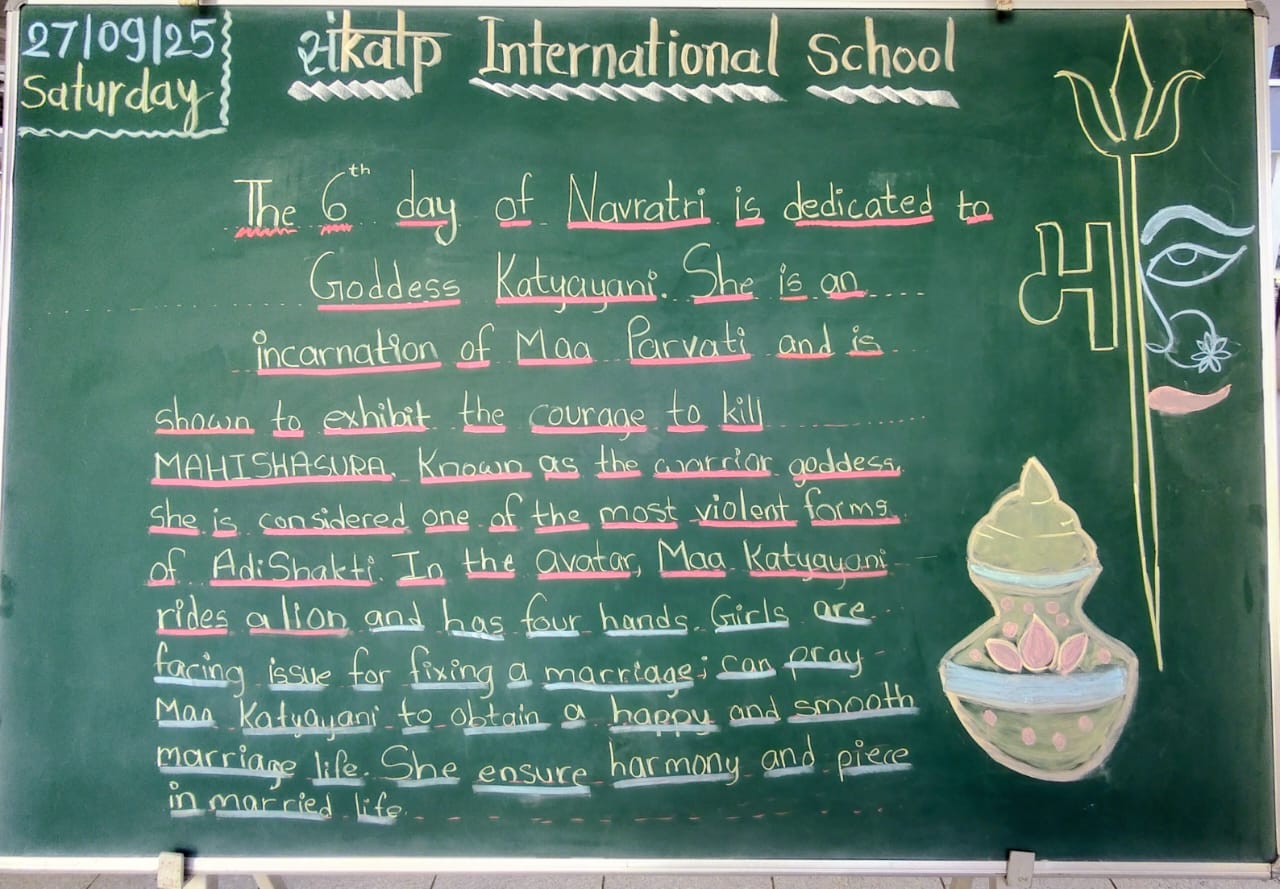 27/09/25
Saturday
संkalp International School
The 6th day of Navratri is dedicated to
Goddess Katyayani. She is an
incarnation of Maa Parvati and is
shown to exhibit the courage to kill
MAHISHASURA. Known as the warrior goddess,
she is considered one of the most violent forms
of AdiShakti. In the avatar, Maa Katyayani
rides a lion and has four hands. Girls are
facing issue for fixing a marriage; can pray
Maa Katyayani to obtain a happy and smooth
marriage life. She ensure harmony and piece
in married life.
माँ